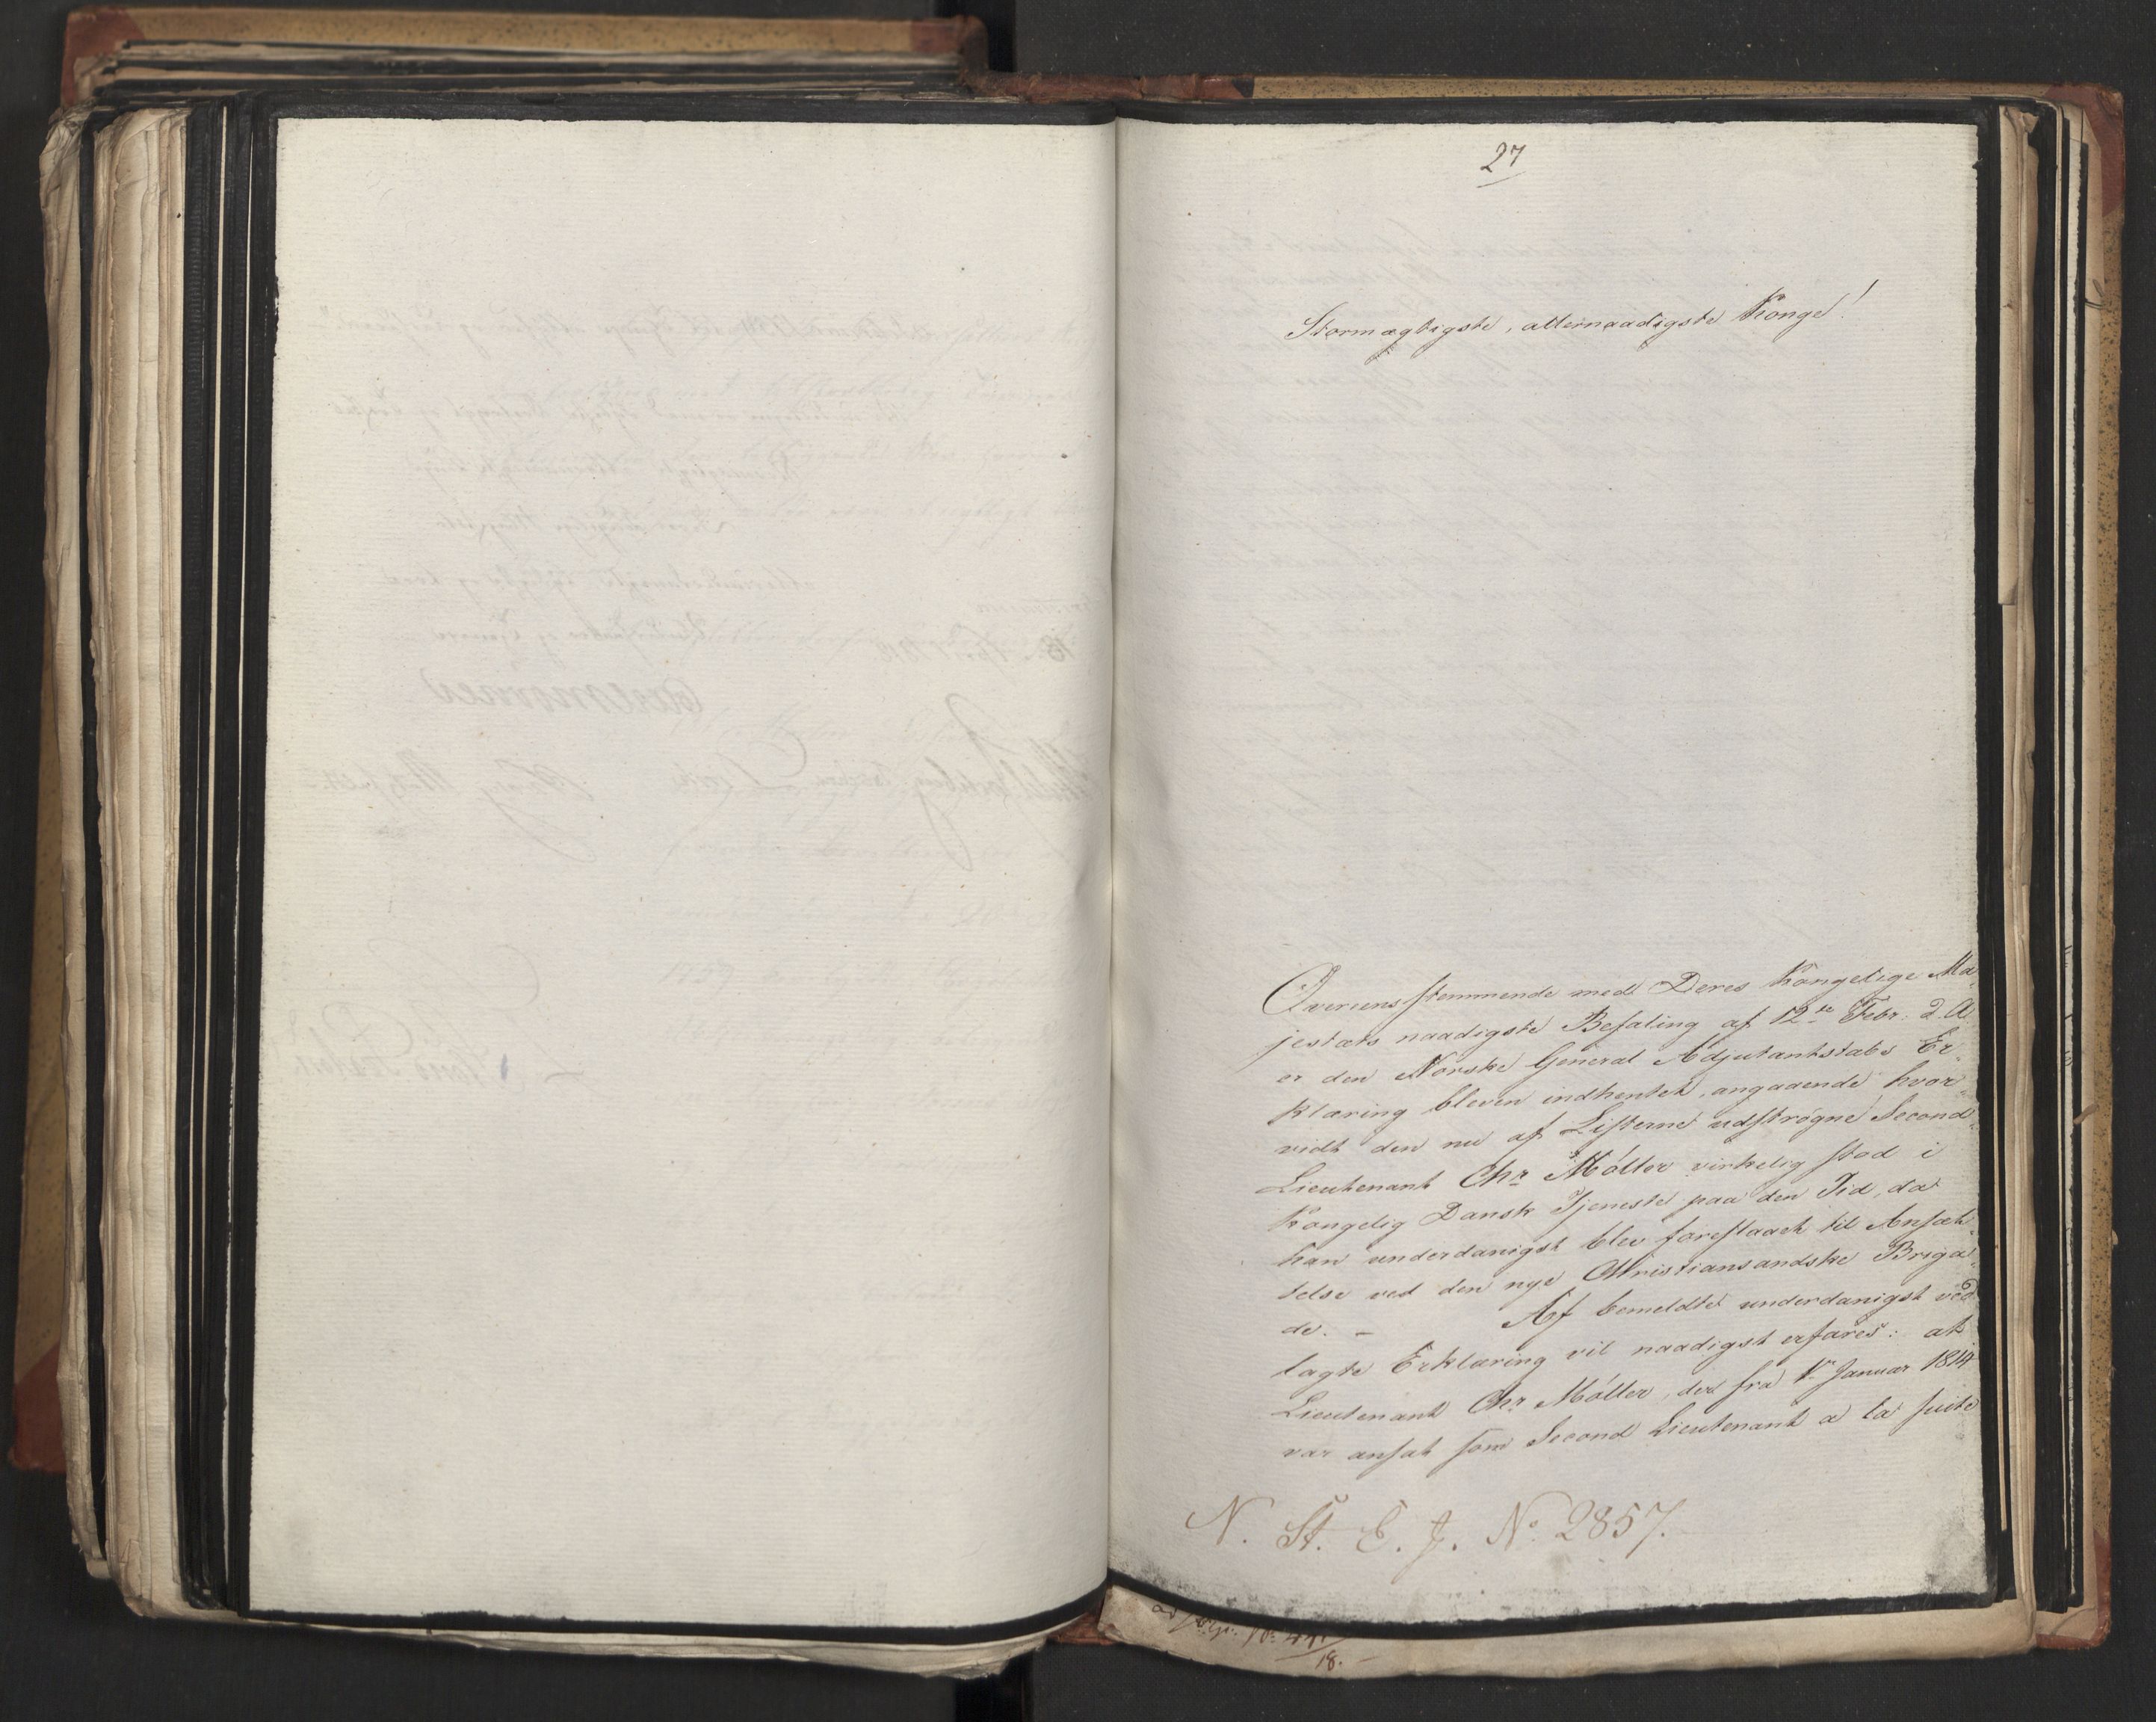 27
Stormægtigste, allernaadigste Konge!
Overeensstemmende med Deres Kongelige Ma-
jestæts naadigste Befaling af 12te Febr. d. A.
er den Norske General Adjutantstabs Er-
klæring bleven indhentet, angaaende hvor-
vidt den nu af Listerne udstrøgne Second-
Lieutenant Chr. Møller virkelig stod i
Kongelig Dansk Tjeneste paa den Tid, da
han underdanigst blev foreslaaet til Ansæt-
telse ved den nye Christiansandske Briga-
de. – Af bemeldte underdanigst ved-
lagte Erklæring vil naadigst erfares: at
Lieutenant Chr. Møller, der fra 1te Januar 1814
var ansat som Second Lieutenant a la suite
N. St. E. J. No 2857.
18.